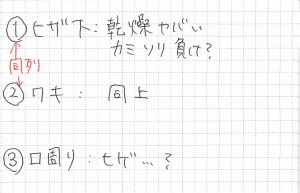 ① ヒザ下：乾燥ヤバい
カミソリ負け？
同列
② ワキ： 同上
③ 口周り：ヒゲ…？